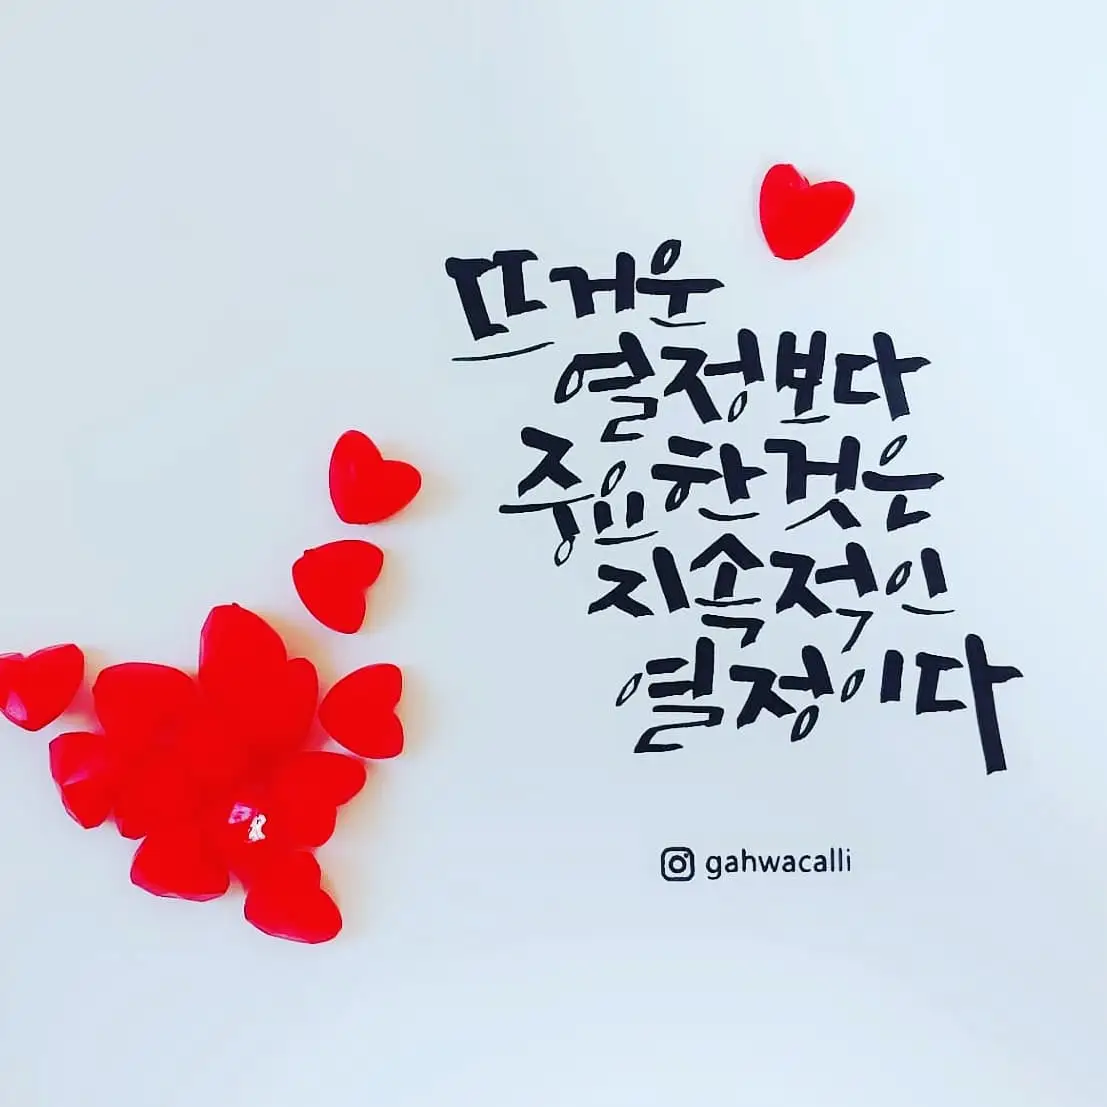 뜨거운
열정보다
중요한것은
지속적인
열정이다
gahwacalli